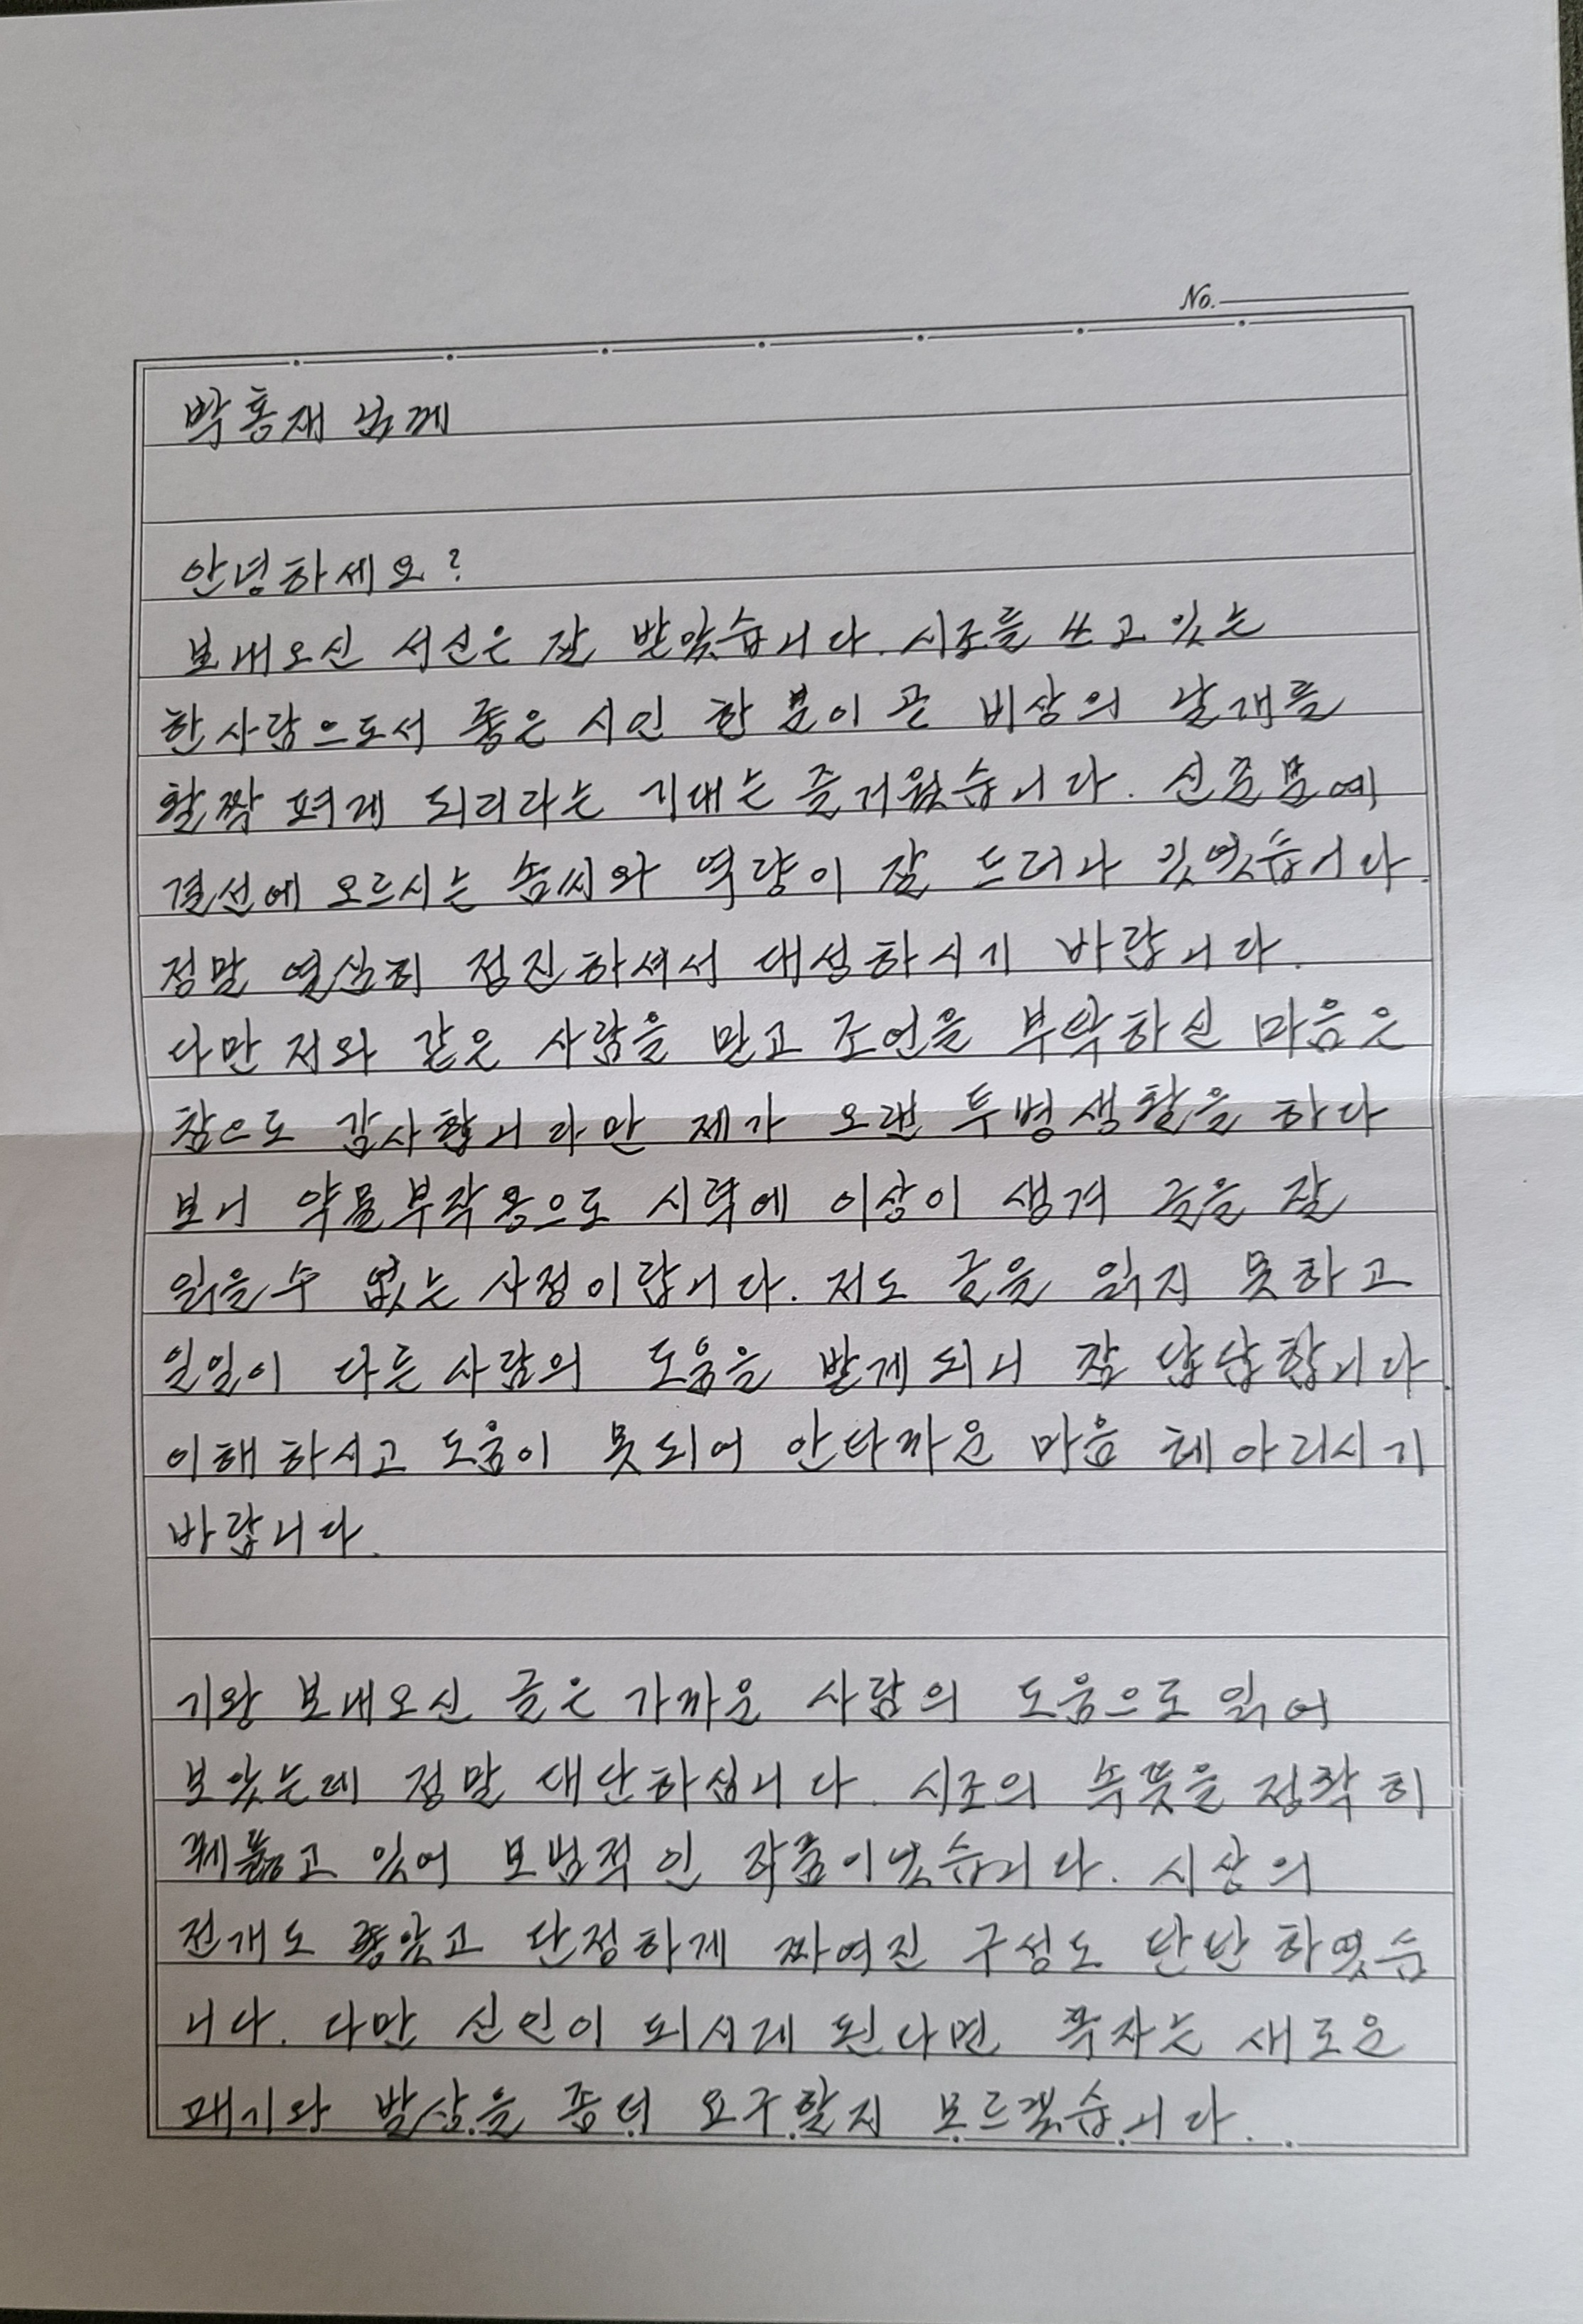 No.
박홍재 님께
안녕하세요?
보내오신 서신은 잘 받았습니다. 시조를 쓰고 있는
한 사람으로서 좋은 시인 한 분이 곧 비상의 날개를
활짝 펴게 되리라는 기대는 즐거웠습니다. 신문 문예
결선에 오르시는 솜씨와 역량이 잘 드러나 있었습니다.
정말 열심히 정진하셔서 대성하시기 바랍니다.
다만 저와 같은 사람을 믿고 조언을 부탁하신 마음은
참으로 감사합니다만 제가 오랜 투병생활을 하다
보니 약물부작용으로 시력에 이상이 생겨 글을 잘
읽을 수 없는 사정이랍니다. 저도 글을 읽지 못하고
일일이 다른 사람의 도움을 받게 되니 참 답답합니다.
이해하시고 도움이 못되어 안타까운 마음 헤아리시기
바랍니다.
기왕 보내오신 글은 가까운 사람의 도움으로 읽어
보았는데 정말 대단하십니다. 시조의 속뜻을 정확히
꿰뚫고 있어 모범적인 작품이었습니다. 시상의
전개도 좋았고 단정하게 짜여진 구성도 단단하였습
니다. 다만 신인이 되시게 된다면 독자는 새로운
패기와 발상을 좀 더 요구할지 모르겠습니다.